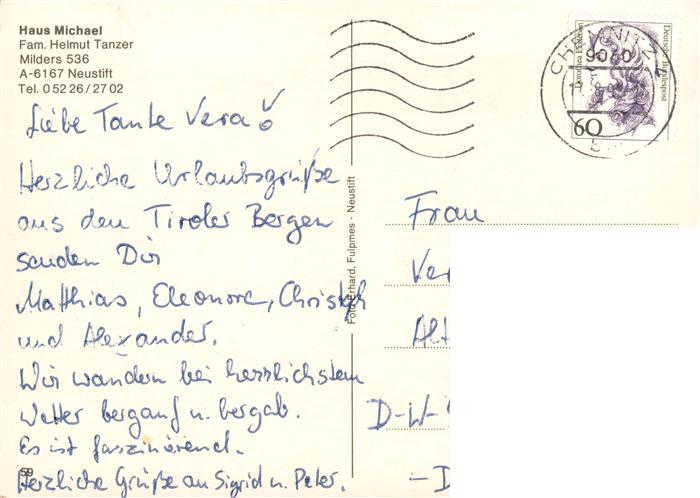 Haus Michael
Fam. Helmut Tanzer
Milders 536
A-6167 Neustift
Tel. 0 52 26 / 27 02
Liebe Tante Vera!
Herzliche Urlaubsgrüße
aus den Tiroler Bergen
senden Dir
Matthias, Eleonore, Christoph
und Alexander.
Wir wandern bei herrlichstem
Wetter bergauf u. bergab.
Es ist faszinierend.
Herzliche Grüße an Sigrid u. Peter.
59
Foto Gerhard, Fulpmes - Neustift
CHEMNITZ
9060
Deutsche Bundespost
60
Frau
Ver
Alt
D-W-
- D